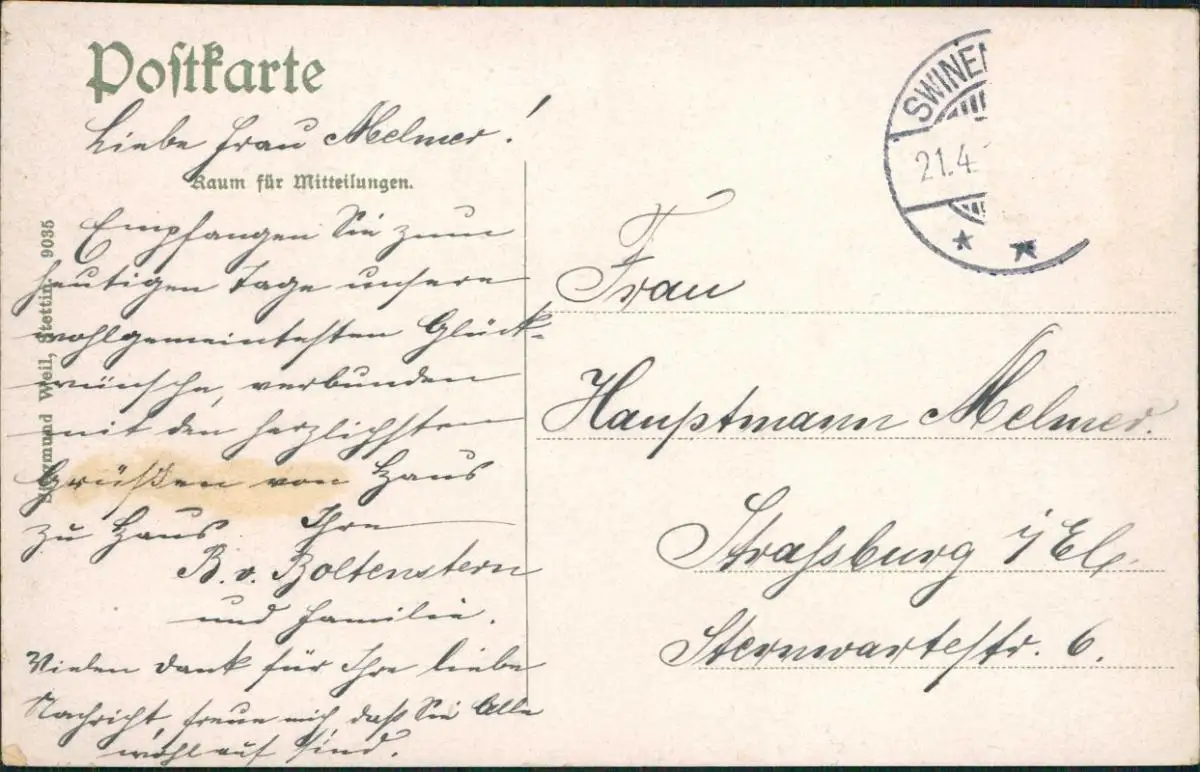 Postkarte
Liebe Frau Melmer!
Raum für Mitteilungen.
Empfangen Sie zum
heutigen Tage unsere
wohlgemeintesten Glück-
wünsche, verbunden
mit den herzlichsten
Grüßen von Haus
zu Haus Ihre
B. v. Boltenstern
und Familie.
Vielen Dank für Ihre liebe
Nachricht, freue mich, daß Sie Alle
wohlauf sind.
Siegmund Weil, Stettin. 9035
SWINEM
21.4.
Frau
Hauptmann Melmer.
Strassburg i/Els.
Sternwartestr. 6.